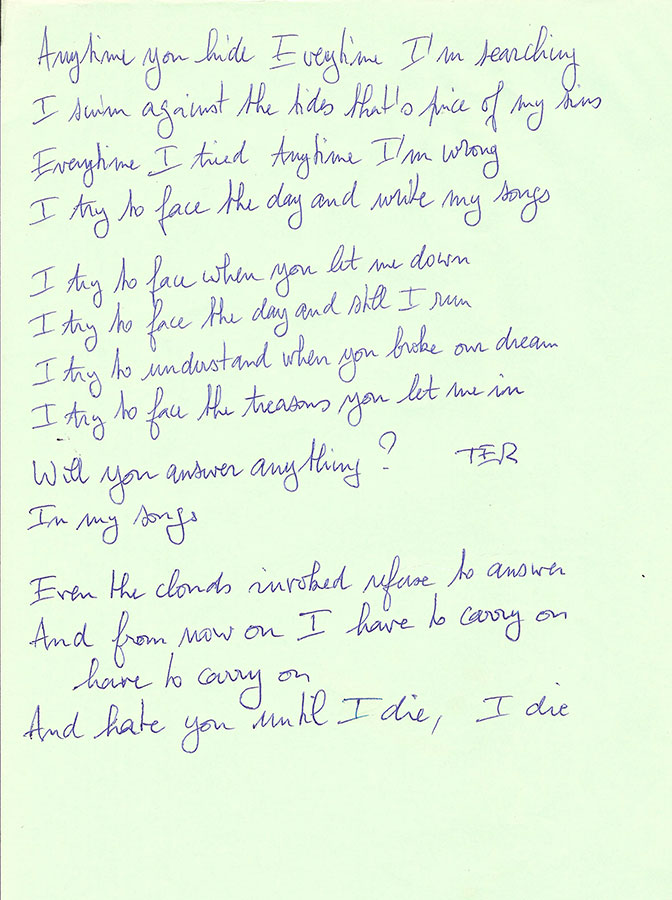 Anytime you hide Everytime I'm searching
I swim against the tides that's price of my sins
Everytime I tried Anytime I'm wrong
I try to face the day and write my songs
I try to face when you let me down
I try to face the day and still I run
I try to understand when you broke our dream
I try to face the treasons you let me in
Will you answer anything? TER
In my songs
Even the clouds invoked refuse to answer
And from now on I have to carry on
have to carry on
And hate you until I die, I die